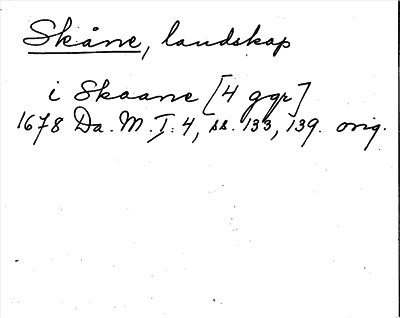 Skåne, landskap
i Skaane [4 ggr]
1678 Da. M. I. 4, ss. 133, 139. orig.